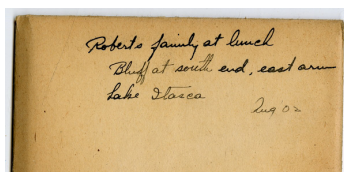 Roberts family at lunch
Bluff at south end, east arm
Lake Itasca
Aug 02